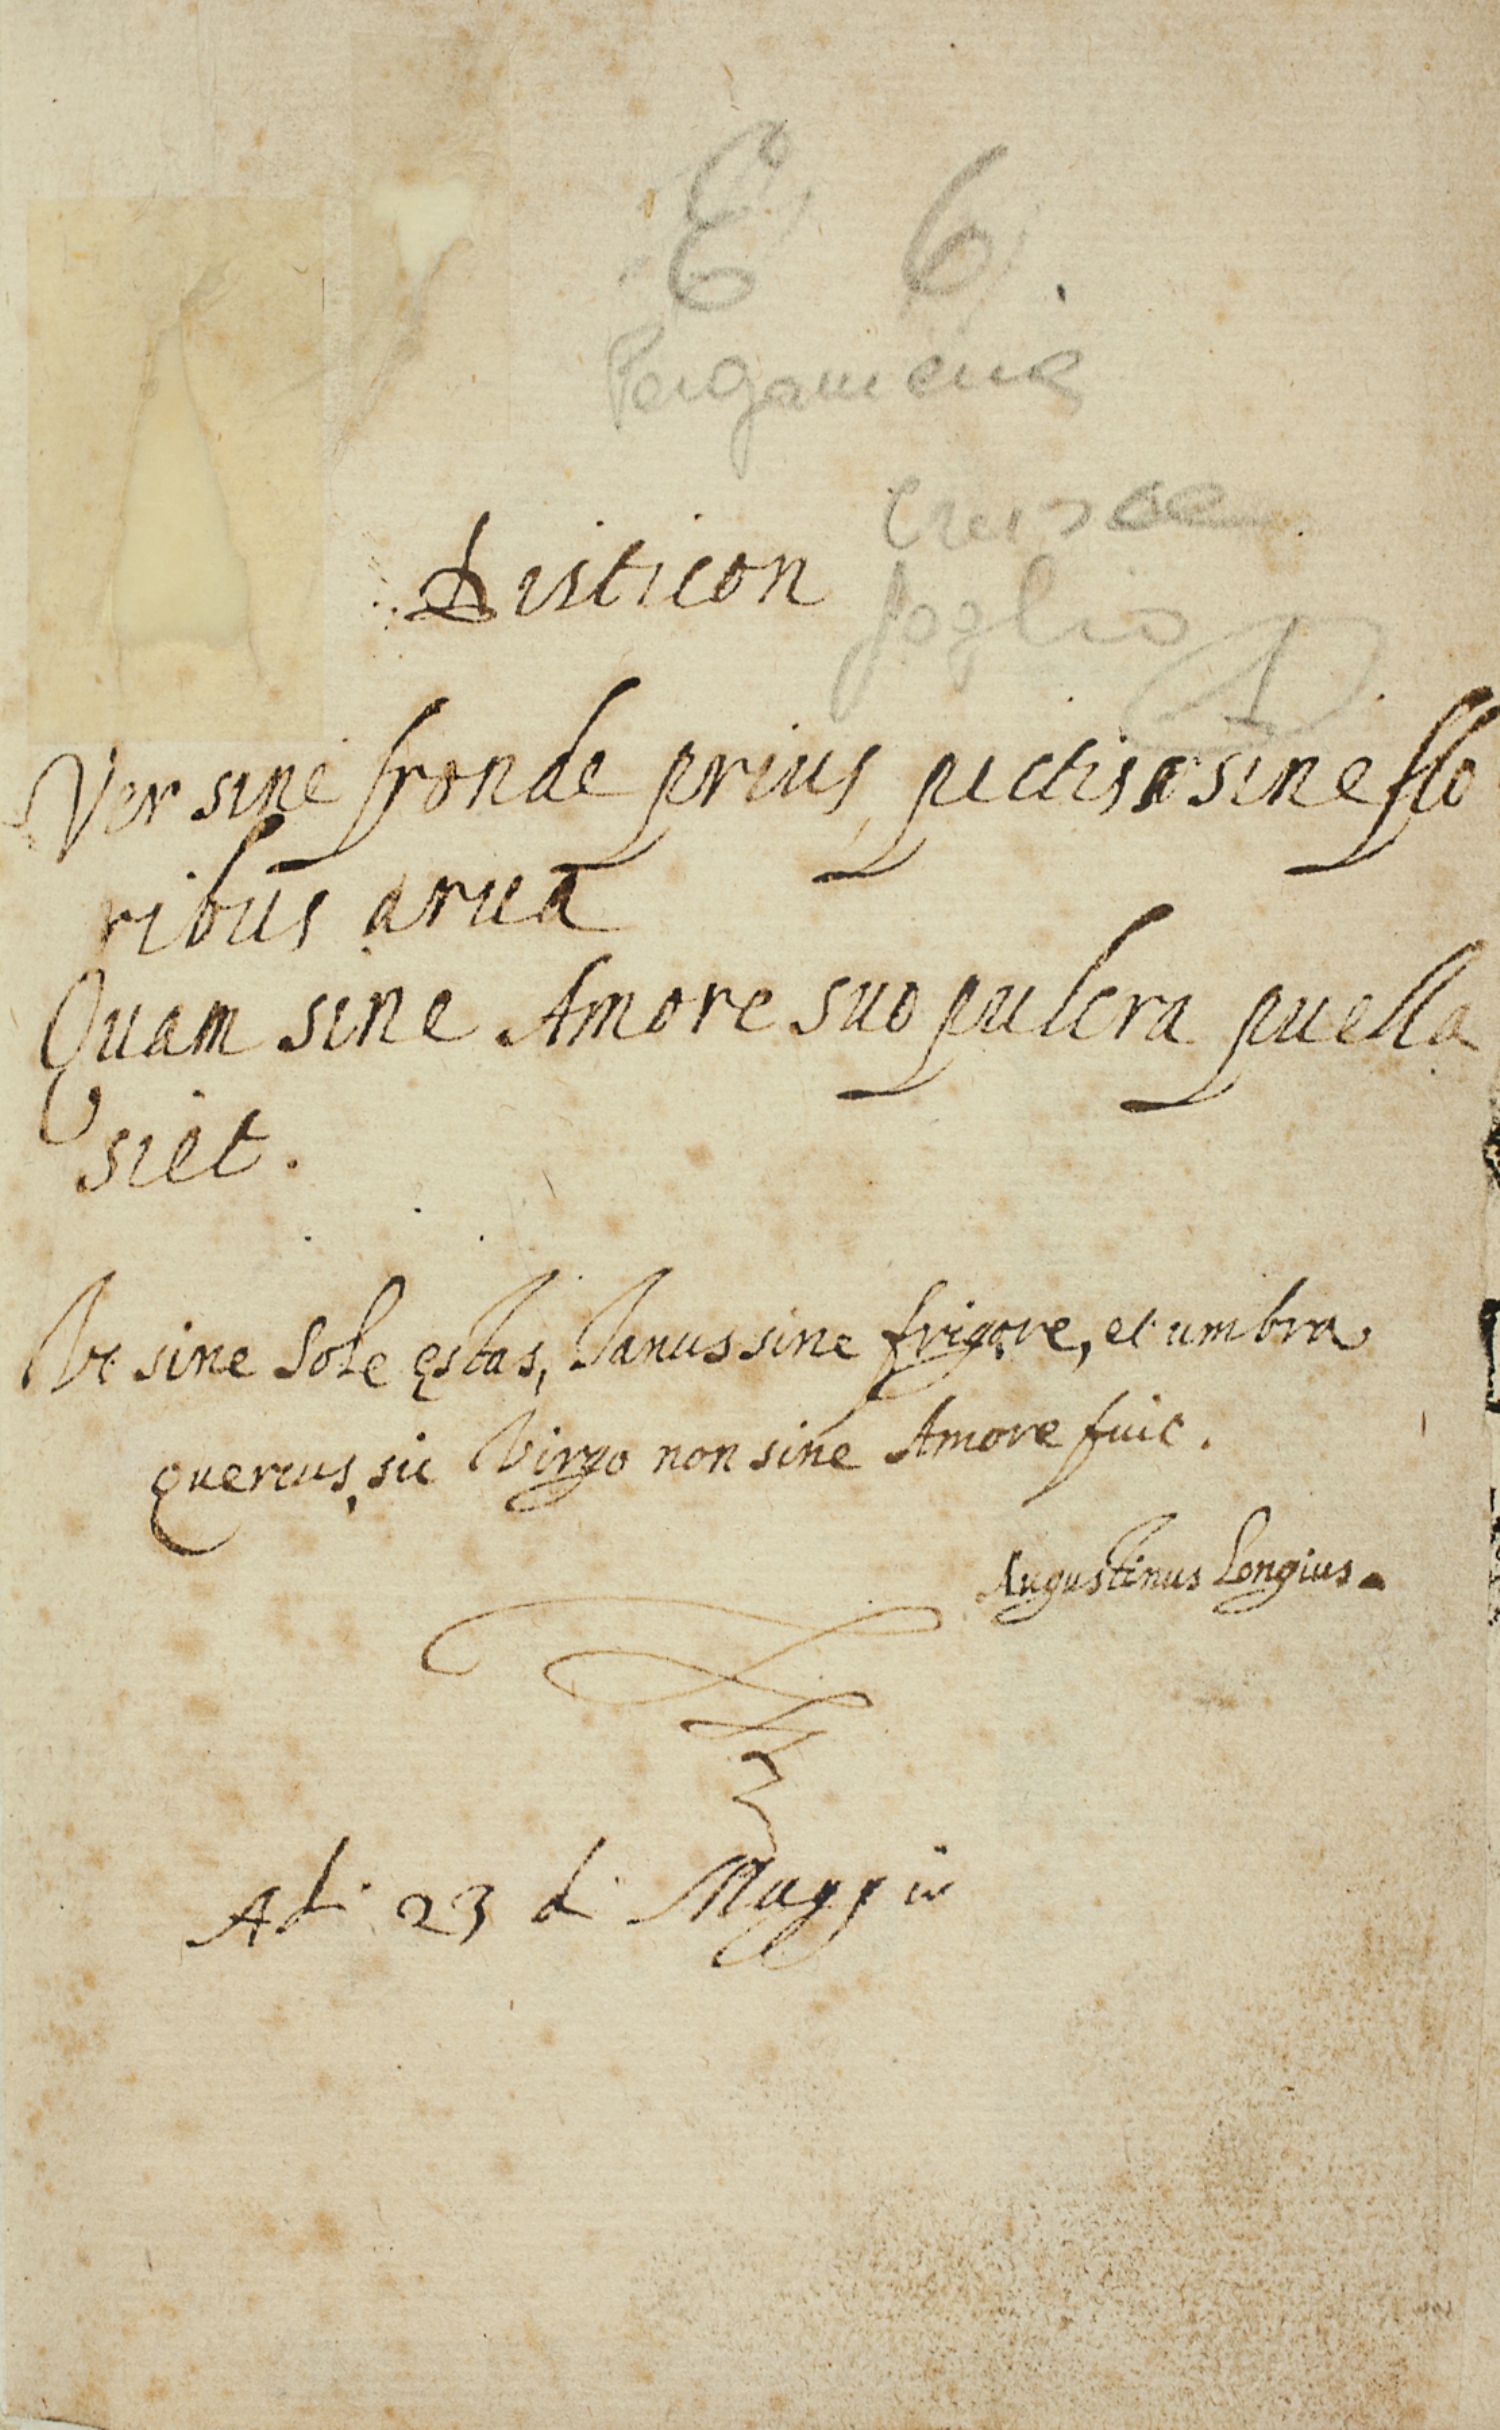 E 6.
Pergamena
foglio
Disticon
Ver sine fronde prius, pictis sine flo
ribus arua
Quam sine Amore suo pulcra puella
siet.
Vt sine Sole ęstas, Ianus sine frigore, et umbra
quercus, sic Virgo non sine Amore fuit.
Augustinus Longius.
Adi 23 di Maggio